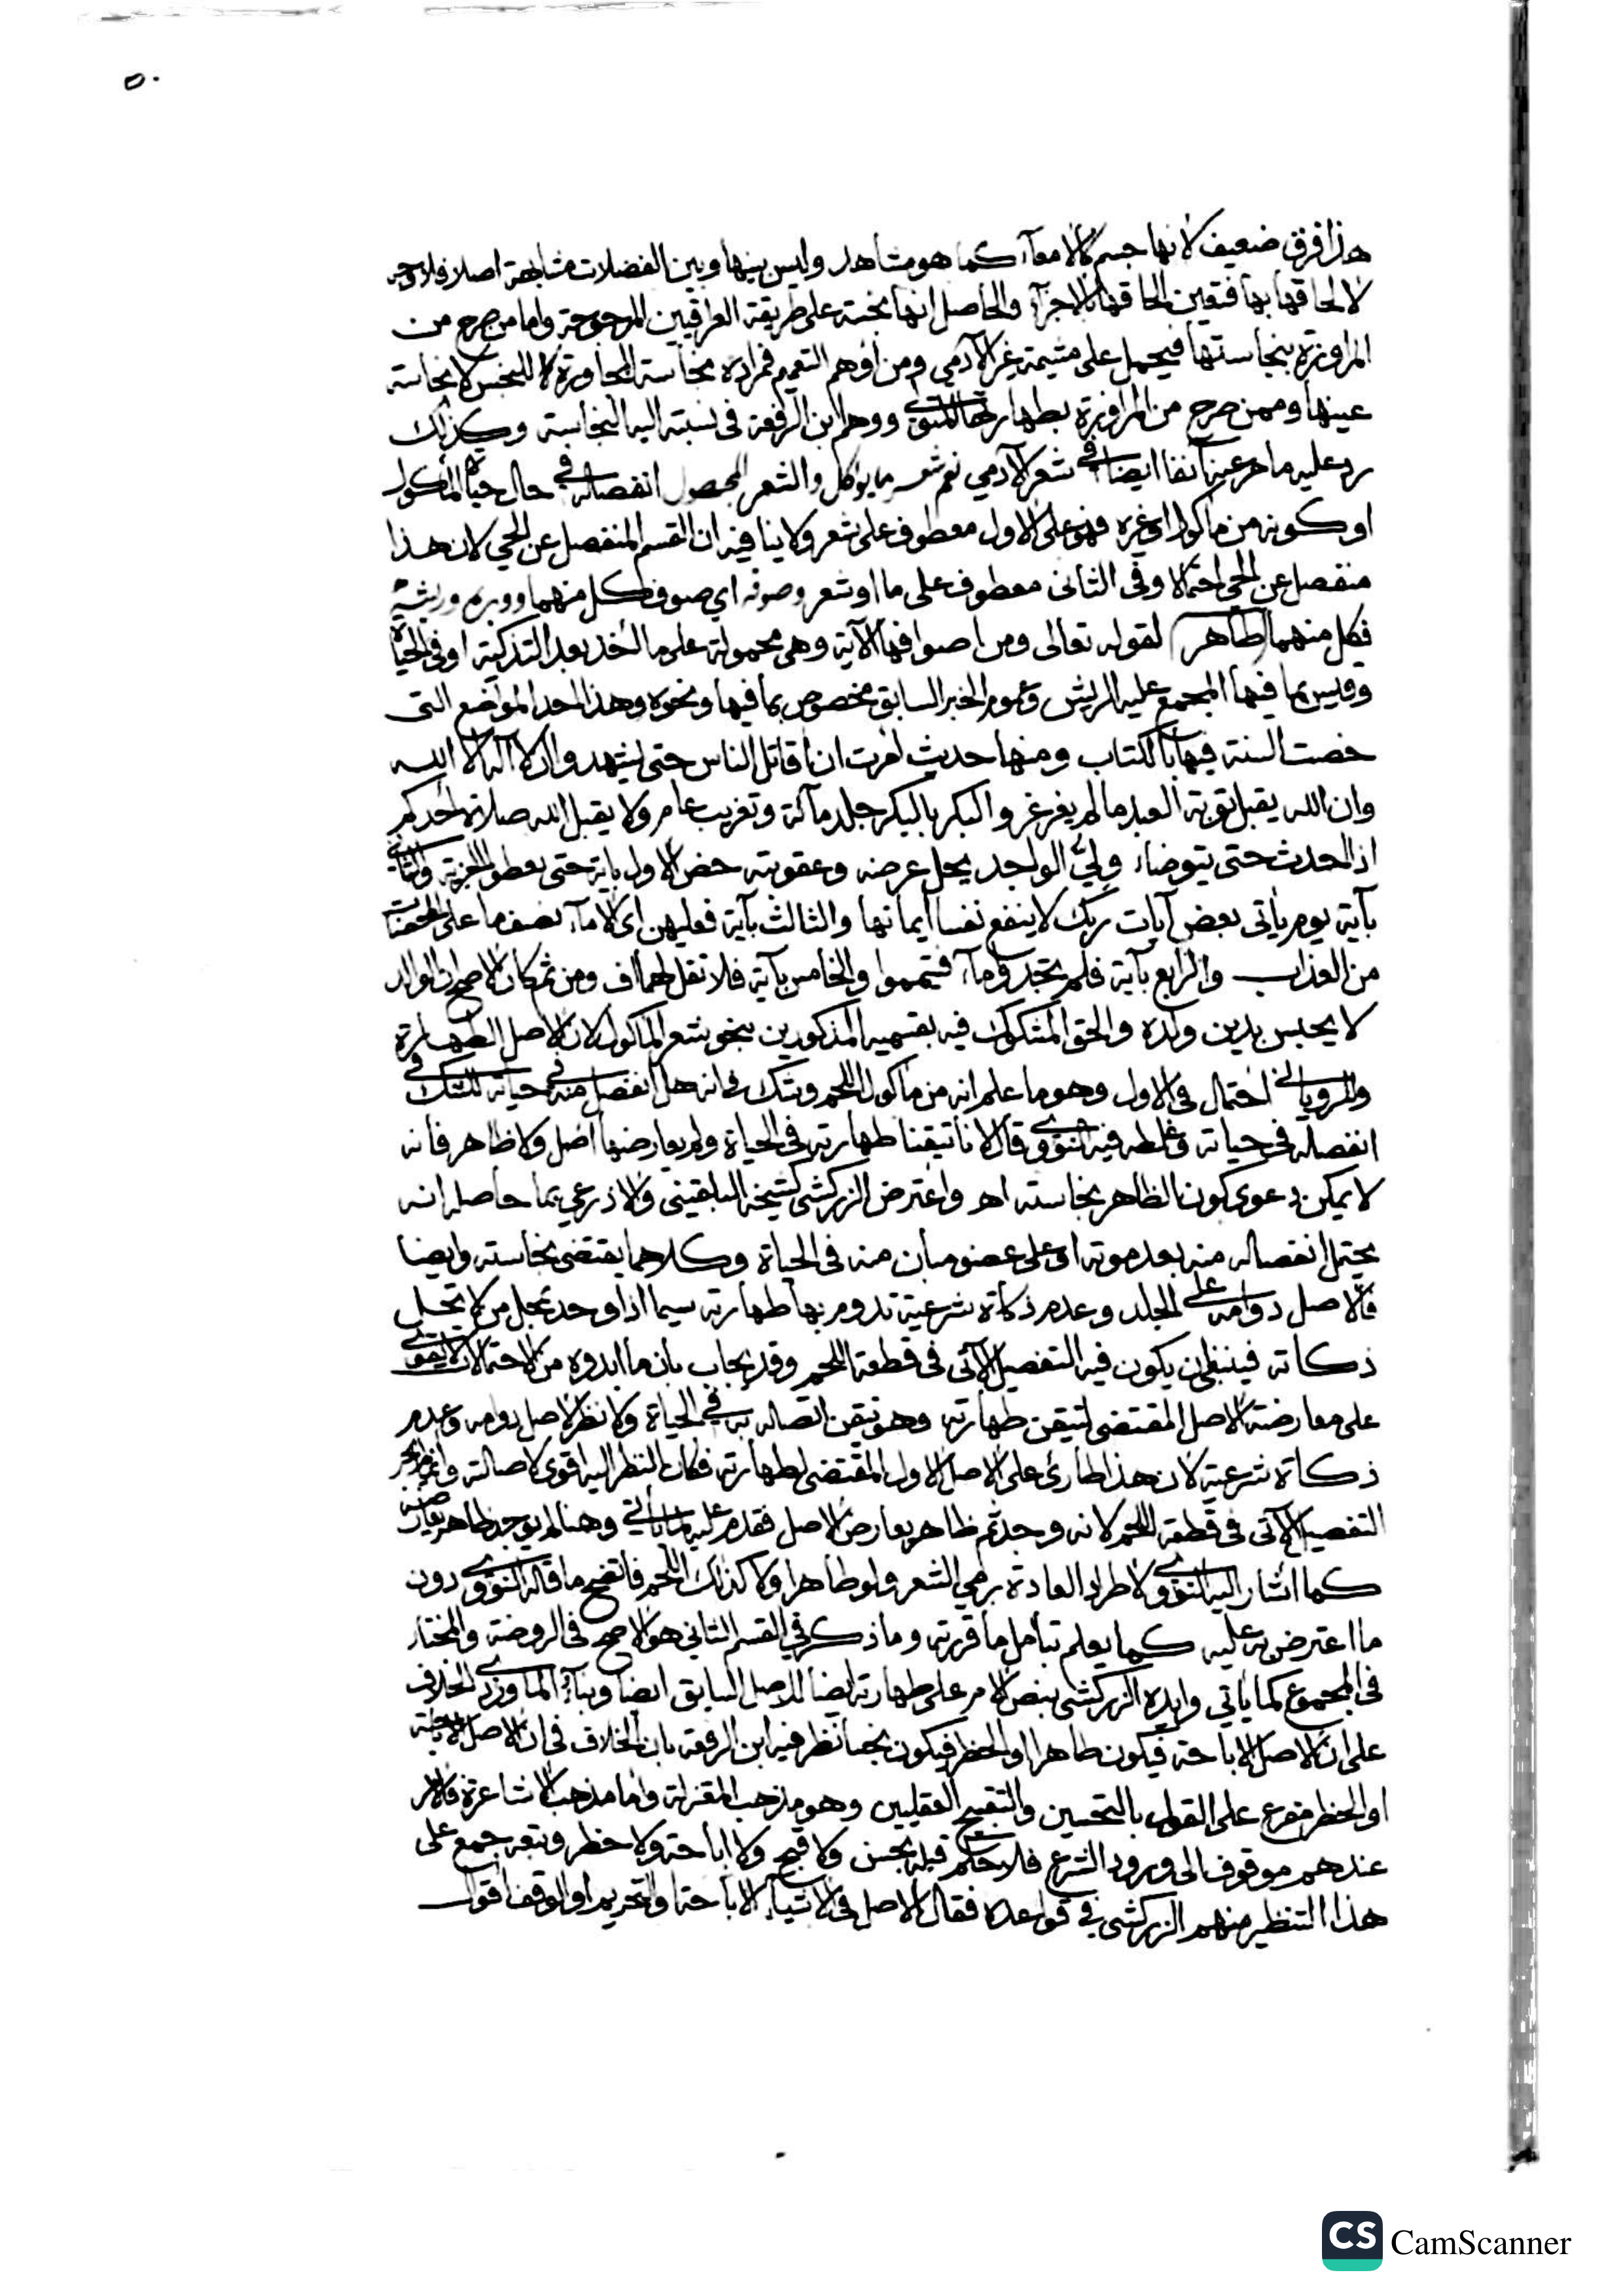 ٥٠
هذا فرق ضعيف لانها جسم كالامعآء كما هو مشاهد وليس بينها وبين الفضلات مشابهة اصلا فلا وجه
لالحاقها بها فتعين الحاقها بالاجزآء والحاصل انها نجسة على طريقة العراقيين المرجوحة واما من صرح من
المراوزة بنجاستها فيحمل على مشيمة غير الآدمي ومن اوهم التعميم فمراده نجاسة المجاورة للنجس لا نجاسة
عينها وممن صرح من المراوزة بطهارتها المتولي ووهم ابن الرفعة في نسبته اليه النجاسة وكذلك
يرد عليه ما مر عنه آنفا ايضا في شعر الآدمي نعم شعر ما يؤكل والشعر المجهول انفصاله في حال حياة المأكول
او كونه من مأكول او غيره فهو على الاول معطوف على شعر ولا ينافيه ان القسم المنفصل عن الحي لان هذا
منفصل عن الحي احتمالا وفي الثاني معطوف على ما او شعر وصوفه اي صوف كل منهما ووبره وريشه
فكل منهما طاهر لقوله تعالى ومن اصوافها الآية وهي محمولة على ما اخذ بعد التذكية او في الحياة
وقيس بما فيها المجمع عليه الريش وعموم الخبر السابق مخصوص بما فيها ونحوه وهذا احد المواضع التي
خصت السنة فيها بالكتاب ومنها حديث امرت ان اقاتل الناس حتى يشهدوا ان لا اله الا الله
وان الله يقبل توبة العبد ما لم يغرغر والبكر بالبكر جلد مآئة وتغريب عام ولا يقبل الله صلاة احدكم
اذا احدث حتى يتوضاء ولي الواجد يحل عرضه وعقوبته خص الاول باية حتى يعطوا الجزية والثاني
بآية يوم يأتي بعض آيات ربك لا ينفع نفسا ايمانها والثالث بآية فعليهن اى الامآء نصف ما على المحصنات
من العذاب والرابع بآية فلم تجدوا مآء فتيمموا والخامس بآية فلا تقل لهما اف ومن ثم كان الاصح ان الوالد
لا يحبس بدين ولده والحق المشكوك فيه بقسميه المذكورين بنحو شعر المأكول لان الاصل الطهارة
وللروياني احتمال في الاول وهو ما علم انه من مأكول اللحم وشك في انه هل انفصل منه في حياته للشك في
انفصاله في حياته وغلطه فيه النووي وقال لانا تيقنا طهارته في الحياة ولم يعارضها اصل ولا ظاهر فانه
لا يمكن دعوى كون الظاهر نجاسته اهـ واعترض الزركشي كشيخه البلقيني والاذرعي بما حاصله انه
يحتمل انفصاله منه بعد موته او على عضو مبان منه في الحياة وكلاهما يقتضي نجاسته وايضا
فالاصل دوامه على الجلد وعدم ذكاة شرعية تدوم بها طهارته سيما اذا وجد بمحل من لا تحل
ذكاته فينبغي ان يكون فيه التفصيل الآتي في قطعة اللحم وقد يجاب بان ما ابدوه من الاحتمالات لا يقوى
على معارضة الاصل المقتضي لتيقن طهارته وهو تيقن اتصاله به في الحياة ولا نظر لاصل دوامه وعدم
ذكاة شرعية لان هذا طارئ على الاصل الاول المقتضي لطهارته فكان النظر اليه اقوى لاصالته وانما جرى
التفصيل الآتي في قطعة اللحم لانه وجد ثم ظاهر يعارض الاصل فقدم عليه لما يأتي وهنا لم يوجد ظاهر يعارضه
كما اشار اليه النووي لاطراد العادة برمي الشعر ولو طاهرا ولا كذلك اللحم فاتضح ما قاله النووي دون
ما اعترض به عليه كما يعلم بتأمل ما قررته وما ذكر في القسم الثاني هو الاصح في الروضة والمختار
في المجموع كما يأتي وايده الزركشي بنص الام على طهارته ايضا للاصل السابق ايضا وبنآء الماوردي الخلاف
على ان الاصل الاباحة فيكون طاهرا او الحظر فيكون نجسا نظر فيه ابن الرفعة بان الخلاف في ان الاصل الاباحة
او الحظر مفرع على القول بالتحسين والتقبيح العقليين وهو مذهب المعتزلة واما مذهب الاشاعرة فالامر
عندهم موقوف الى ورود الشرع فلا حكم قبله بحسن ولا قبح ولا اباحة ولا حظر وتبعه جمع على
هذا التنظير منهم الزركشي في قواعده فقال الاصل في الاشيآء الاباحة او التحريم او الوقف اقوال
CS CamScanner